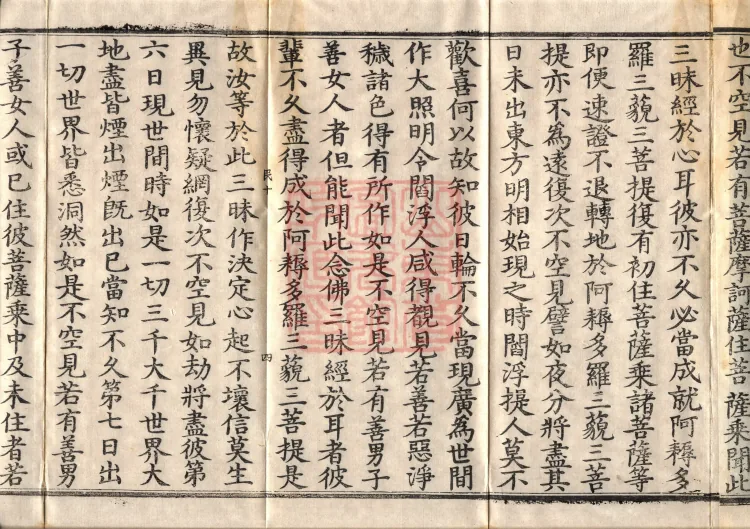 也不空見若有菩薩摩訶薩住菩薩乘聞此
三昧經於心耳彼亦不久必當成就阿耨多
羅三藐三菩提復有初住菩薩乘諸菩薩等
即便速證不退轉地於阿耨多羅三藐三菩
提亦不為遠復次不空見譬如夜分將盡其
日未出東方明相始現之時閻浮提人莫不
歡喜何以故知彼日輪不久當現廣為世間
作大照明令閻浮人咸得覩見若善若惡淨
穢諸色得有所作如是不空見若有善男子
善女人者但能聞此念佛三昧經於耳者彼
輩不久盡得成於阿耨多羅三藐三菩提是
民十 四
故汝等於此三昧作決定心起不壞信莫生
異見勿懷疑網復次不空見如劫將盡彼第
六日現世間時如是一切三千大千世界大
地盡皆煙出煙既出已當知不久第七日出
一切世界皆悉洞然如是不空見若有善男
子善女人或已住彼菩薩乘中及未住者若